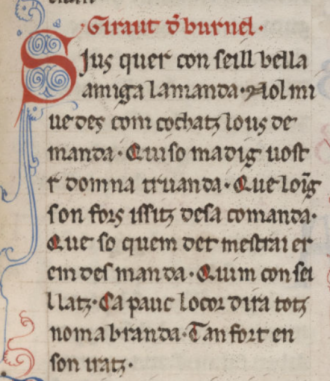 Giraut đ burnel.
Sius quer con seill bella
amiga lamanda. Nol mi
uedes com cochatz lous de
manda. Qui so ma dig uost
r domna truanda. Que loīg
son fors issitz desa comanda.
Que so quem det mestrai er
em des manda. Quim consei
llatz. Ca pauc locor dira totz
nom abranda. Tan fort en
son iratz.